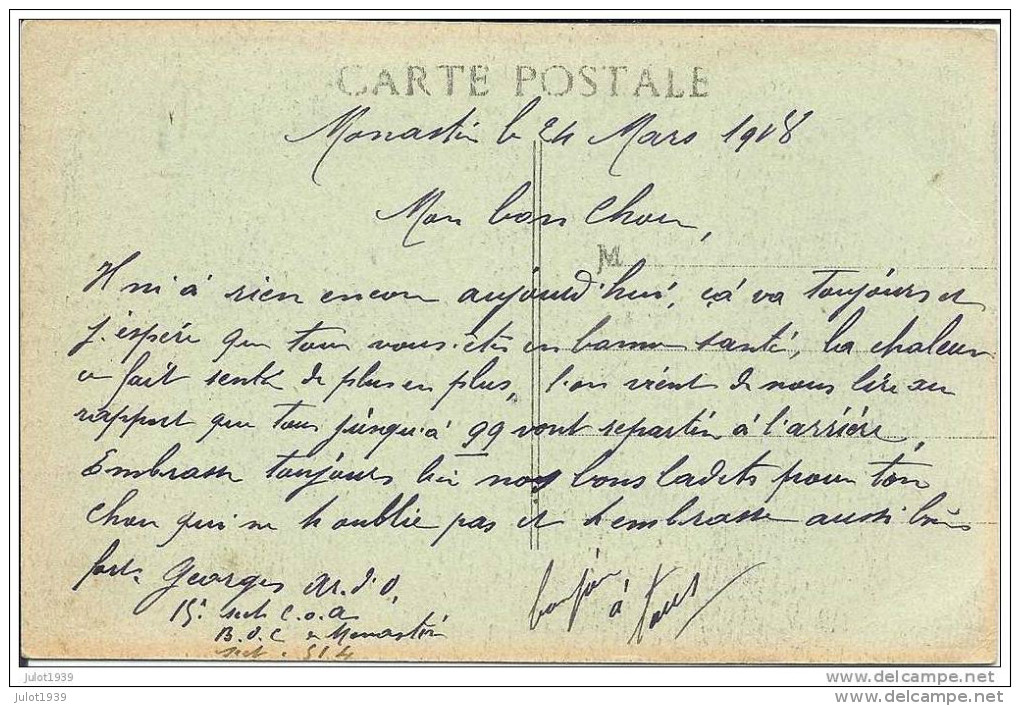 CARTE POSTALE
Monastir le 24 Mars 1918
Mon bon Chou,
M
Il ni à rien encore aujourd'hui, ça va toujours et
j'espère que tous vous êtes en bonne santé, la chaleur
ce fait sentir de plus en plus, l'on vient de nous lire au
rapport que tous jusqu'à 99 vont repartir à l'arrière,
Embrasse toujours bien nos bons Cadets pour ton
Chou qui ne t'oublie pas et t'embrasse aussi bien
fort. Georges
bonjour
à tous
15e sect C.O.A
B.O.C Monastir
sect. 514
julot1939
julot1939
delcampe.net
delcampe.net